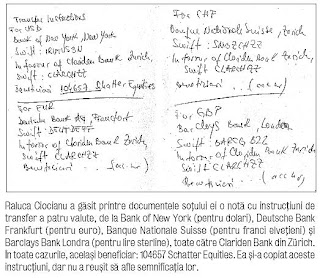 Transfer Instructions
For USD
Bank of New York, New York
Swift: IRVTUS3N
In favor of Clariden Bank Zurich,
Swift: CLARCHZZ
Beneficiari 104657 Shatter Equities
For EUR
Deutsche Bank Frankfort
Swift: DEUTDEFF
In favor of Clariden Bank Zurich,
Swift: CLARCHZZ
Beneficiari ...
For CHF
Banque Nationale Suisse, Zurich
Swift: SNBZCHZZ
In favor of Clariden Bank Zurich,
Swift: CLARCHZZ
Beneficiari ...
For GBP
Barclays Bank, London
Swift: BARCGB22
In favor of Clariden Bank Zurich
Swift: CLARCHZZ
Beneficiari ...
Raluca Ciocianu a găsit printre documentele soțului ei o notă cu instrucțiuni de
transfer a patru valute, de la Bank of New York (pentru dolari), Deutsche Bank
Frankfurt (pentru euro), Banque Nationale Suisse (pentru franci elvețieni) și
Barclays Bank Londra (pentru lire sterline), toate către Clariden Bank din Zürich.
În toate cazurile, același beneficiar: 104657 Schatter Equities. Ea și-a copiat aceste
instrucțiuni, dar nu a reușit să afle semnificația lor.